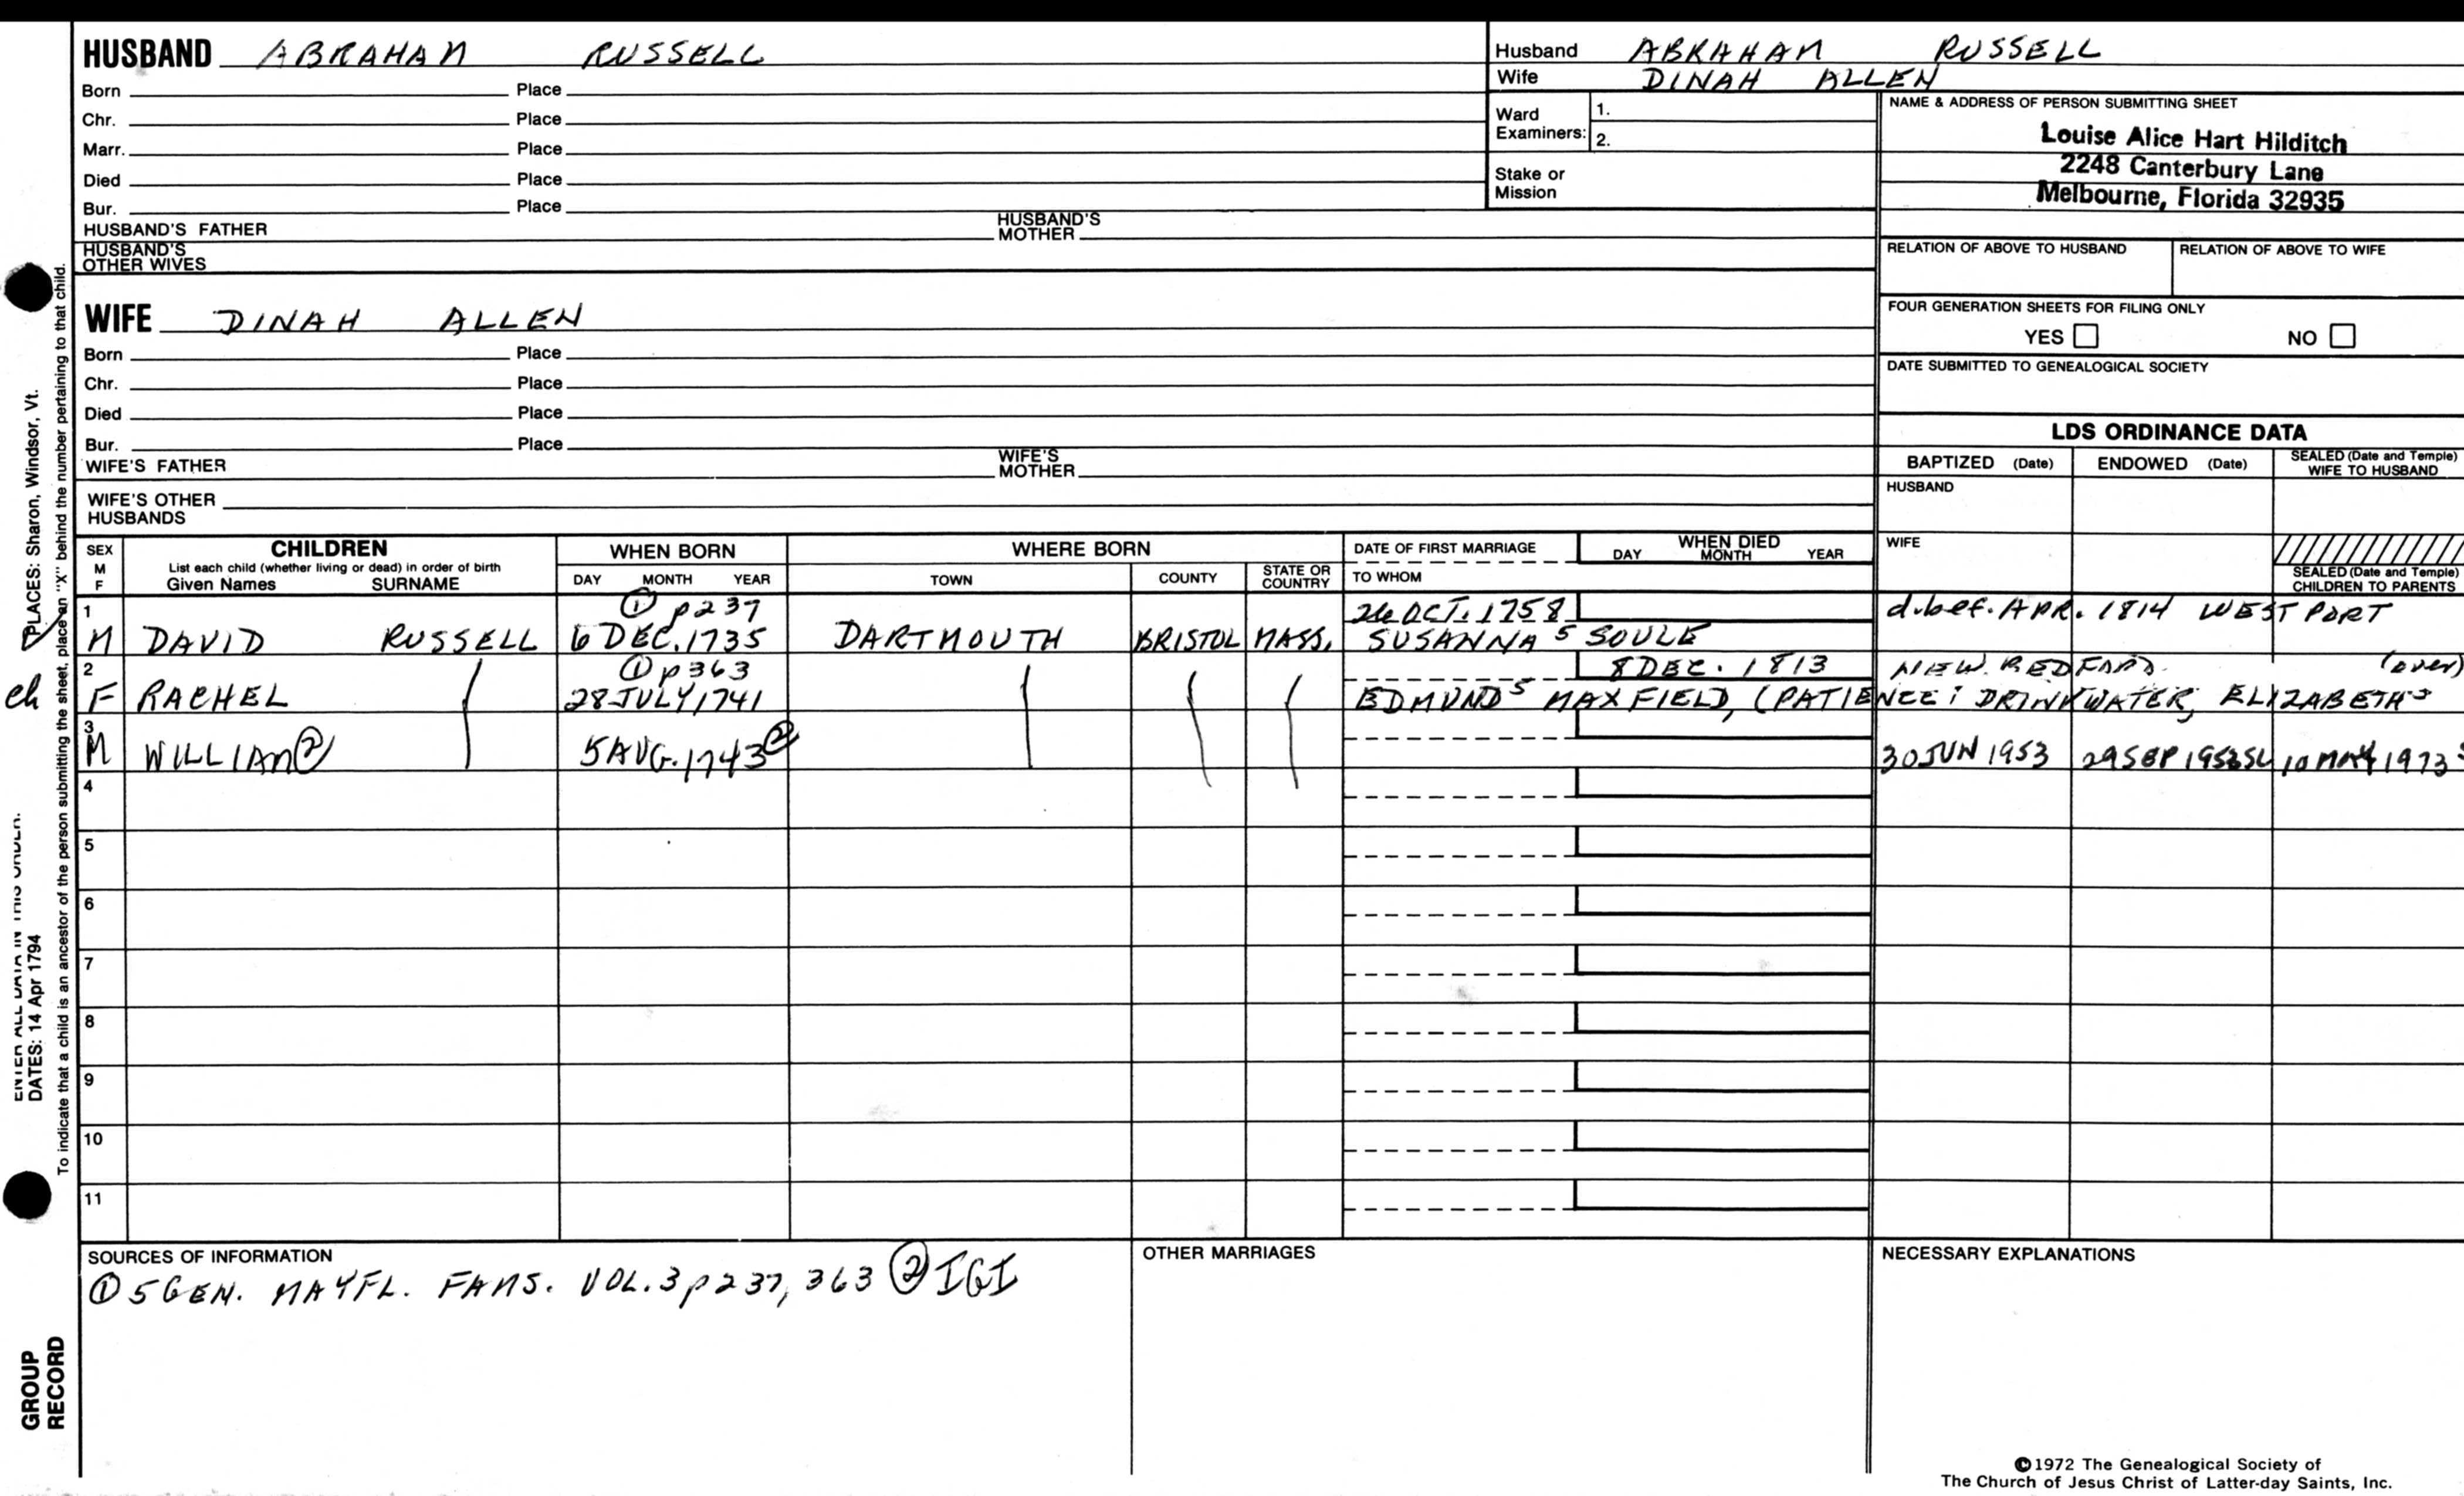 HUSBAND ABRAHAM RUSSELL
Born Place
Chr. Place
Marr. Place
Died Place
Bur. Place
HUSBAND'S FATHER HUSBAND'S MOTHER
HUSBAND'S OTHER WIVES
WIFE DINAH ALLEN
Born Place
Chr. Place
Died Place
Bur. Place
WIFE'S FATHER WIFE'S MOTHER
WIFE'S OTHER HUSBANDS
Husband ABRAHAM RUSSELL
Wife DINAH ALLEN
Ward Examiners: 1.
2.
Stake or Mission
NAME & ADDRESS OF PERSON SUBMITTING SHEET
Louise Alice Hart Hilditch
2248 Canterbury Lane
Melbourne, Florida 32935
RELATION OF ABOVE TO HUSBAND RELATION OF ABOVE TO WIFE
FOUR GENERATION SHEETS FOR FILING ONLY
YES NO
DATE SUBMITTED TO GENEALOGICAL SOCIETY
LDS ORDINANCE DATA
BAPTIZED (Date) ENDOWED (Date) SEALED (Date and Temple) WIFE TO HUSBAND
HUSBAND
WIFE
SEALED (Date and Temple) CHILDREN TO PARENTS
SEX M F
CHILDREN
List each child (whether living or dead) in order of birth
Given Names SURNAME
WHEN BORN
DAY MONTH YEAR
WHERE BORN
TOWN COUNTY STATE OR COUNTRY
DATE OF FIRST MARRIAGE
TO WHOM
WHEN DIED
DAY MONTH YEAR
1 ① p237 26 OCT. 1758 d. bef. APR. 1814 WESTPORT
M DAVID RUSSELL 6 DEC. 1735 DARTMOUTH BRISTOL MASS. SUSANNA⁵ SOULE
2 ① p363 8 DEC. 1813 NEW BEDFORD (over)
F RACHEL 28 JULY 1741 EDMUND⁵ MAXFIELD, (PATIENCE DRINKWATER, ELIZABETH
3
M WILLIAM② 5 AUG. 1743② 30 JUN 1953 29 SEP 1953 SL 10 MAY 1973
4
5
6
7
8
9
10
11
SOURCES OF INFORMATION
① 5 GEN. MAYFL. FAMS. VOL. 3 p237, 363 ② IGI
OTHER MARRIAGES
NECESSARY EXPLANATIONS
©1972 The Genealogical Society of
The Church of Jesus Christ of Latter-day Saints, Inc.
PLACES: Sharon, Windsor, Vt.
ENTER ALL DATA IN THIS ORDER:
DATES: 14 Apr 1794
To indicate that a child is an ancestor of the person submitting the sheet, place an "X" behind the number pertaining to that child.
GROUP
RECORD
ch